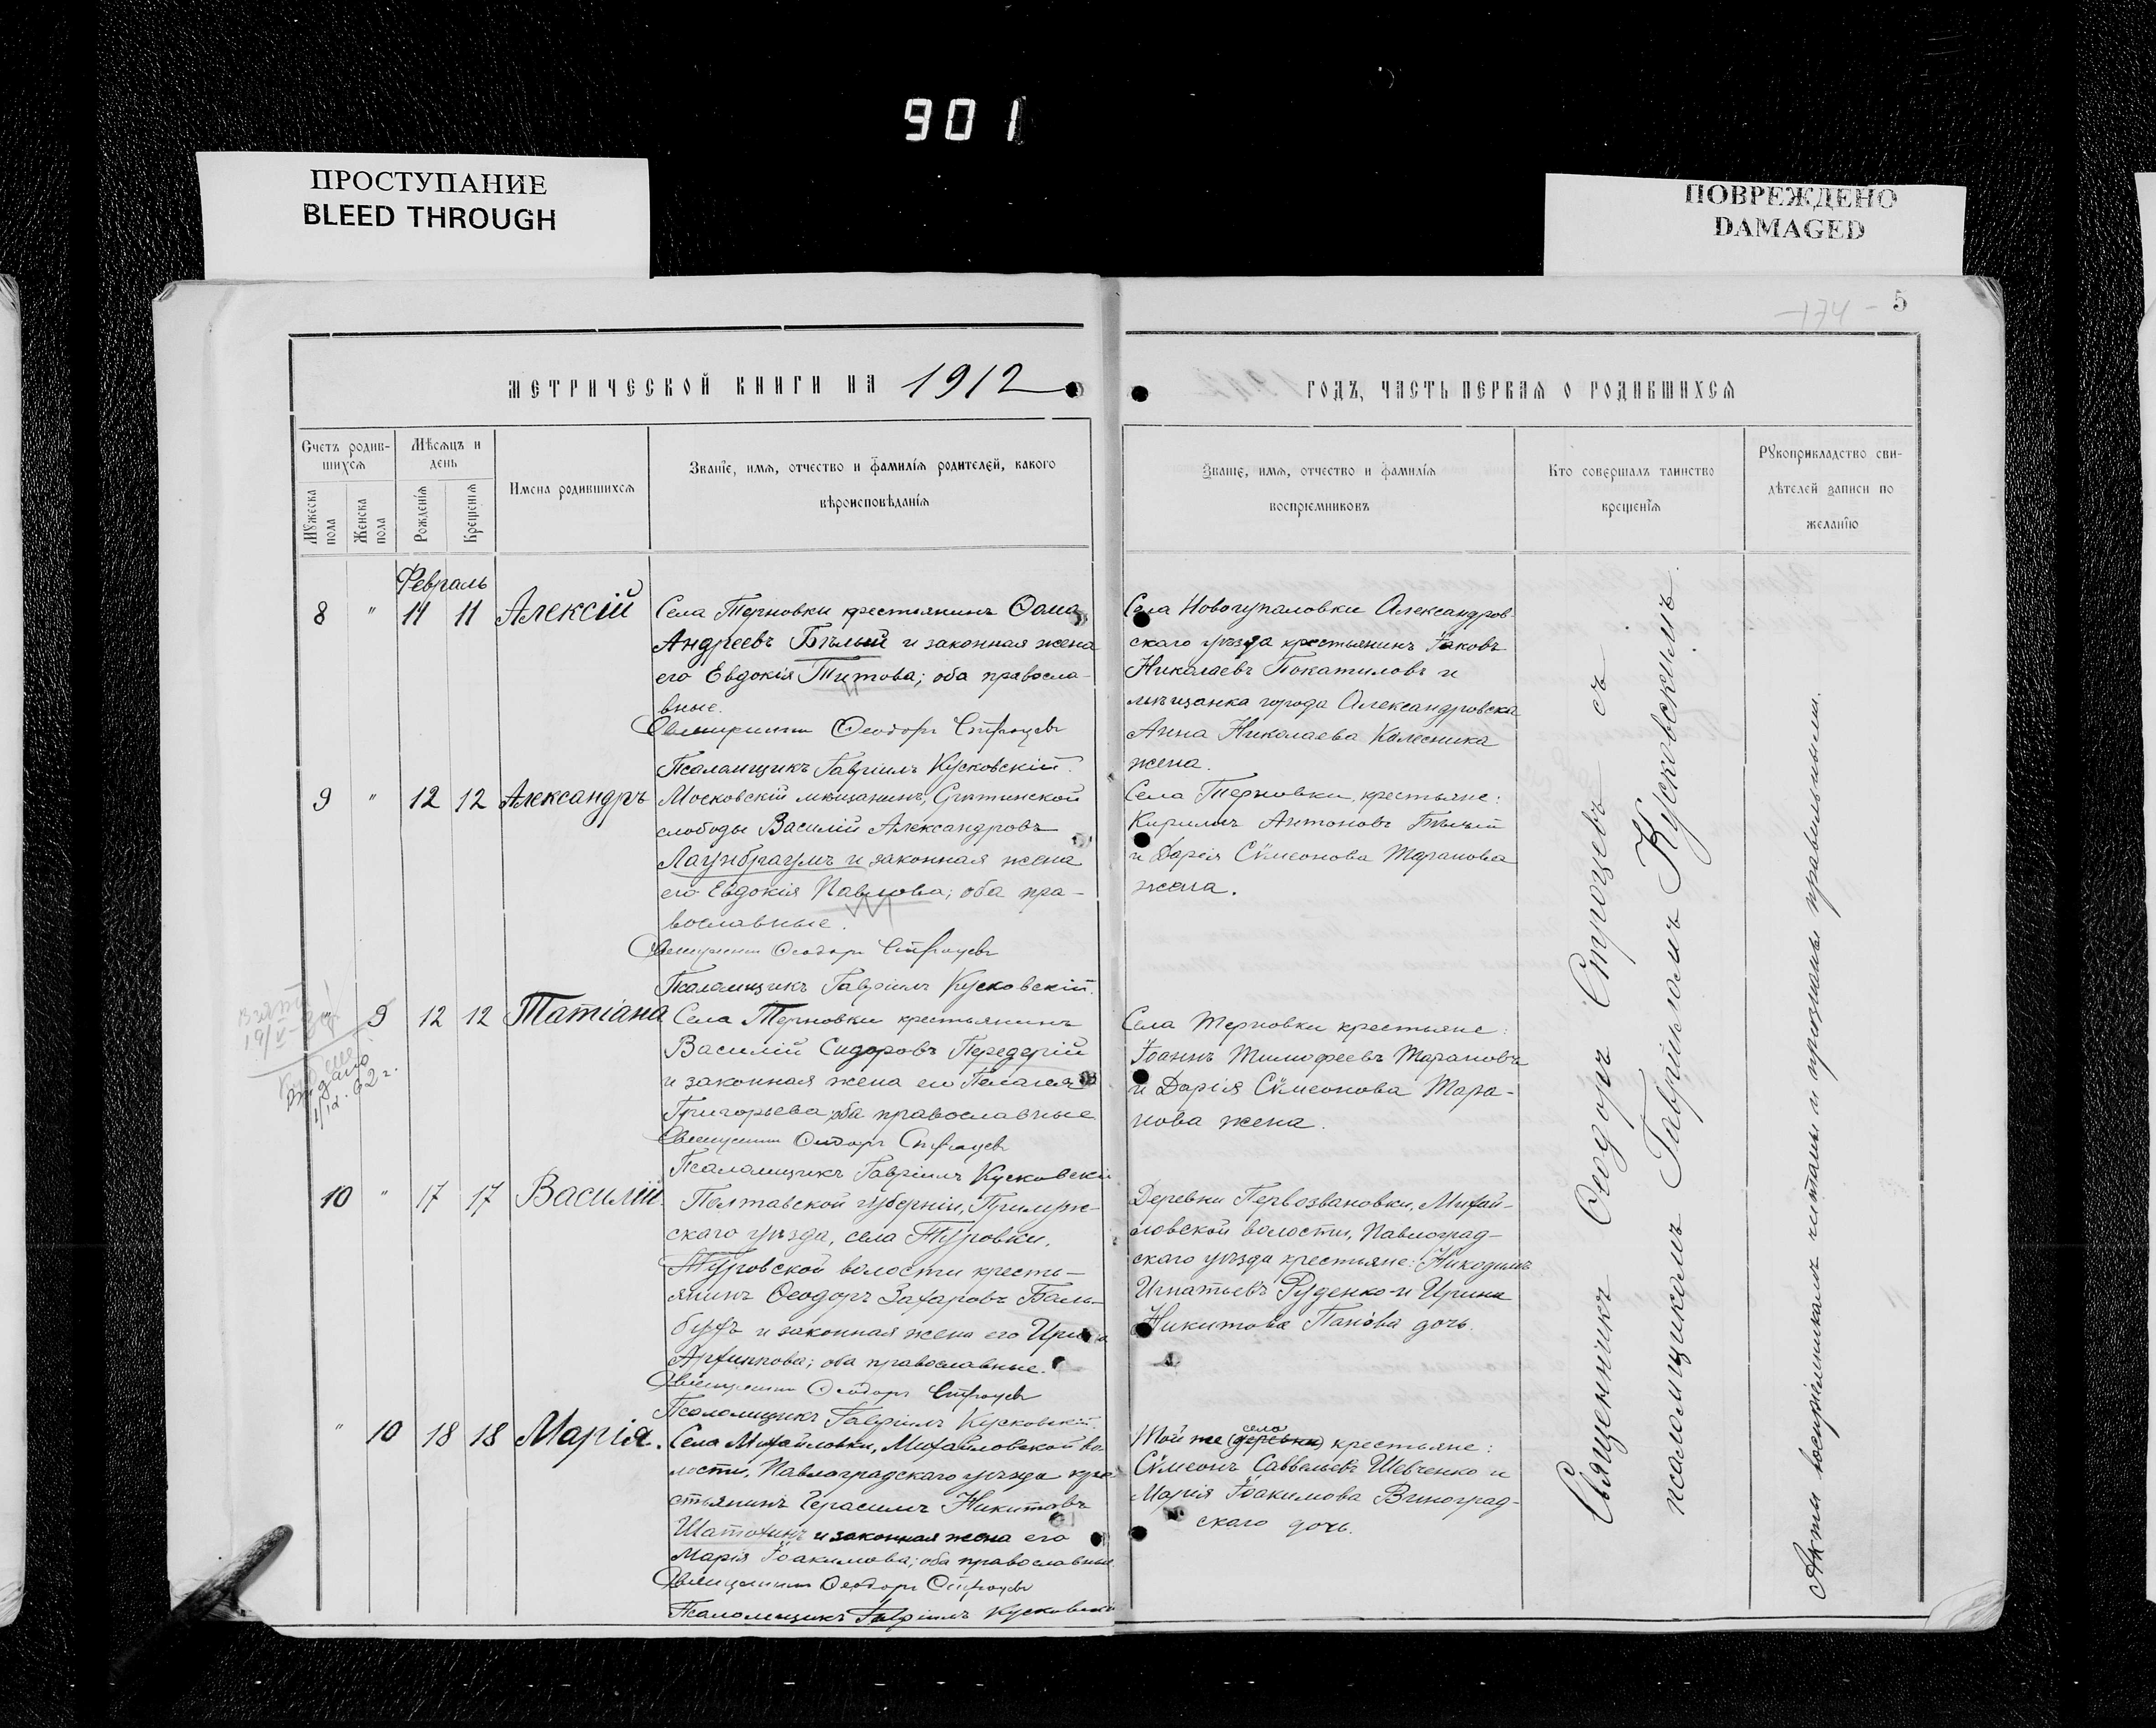 901
ПРОСТУПАНИЕ
BLEED THROUGH
ПОВРЕЖДЕНО
DAMAGED
174 - 5
МЕТРИЧЕСКОЙ КНИГИ НА 1912
ГОДЪ, ЧАСТЬ ПЕРВАЯ О РОДИВШИХСЯ
Счетъ родив-
шихся
Мужеска пола
Женска пола
Мѣсяцъ и
день
Рожденія
Крещенія
Имена родившихся
Званіе, имя, отчество и фамилія родителей, какого
вѣроисповѣданія
Званіе, имя, отчество и фамилія
воспріемниковъ
Кто совершалъ таинство
крещенія
Рукоприкладство сви-
дѣтелей записи по
желанію
Февраль
8 " 11 11 Алексій
Села Терновки крестьянинъ Ѳома
Андреевъ Бѣлый и законная жена
его Евдокія Титова; оба правосла-
вные.
Священникъ Ѳеодоръ Строцевъ
Псаломщикъ Гавріилъ Кусковскій.
Села Новогупаловки Александров-
скаго уѣзда крестьянинъ Іаковъ
Николаевъ Покатиловъ и
мѣщанка города Александровска
Анна Николаева Колесника
жена.
9 " 12 12 Александръ
Московскій мѣщанинъ,
слободы Василій Александровъ
Лаунбраумъ и законная жена
его Евдокія Павлова; оба пра-
вославные.
Священникъ Ѳеодоръ Строцевъ
Псаломщикъ Гавріилъ Кусковскій.
Села Терновки, крестьяне:
Кириллъ Антоновъ Бѣлый
и Дарія Сѵмеонова Таранова
жена.
" 9 12 12 Татіана
Села Терновки крестьянинъ
Василій Сидоровъ Передерій
и законная жена его Пелагія
Григорьева, оба православные
Священникъ Ѳеодоръ Строцевъ
Псаломщикъ Гавріилъ Кусковскій
Села Терновки крестьяне:
Іоаннъ Тимофеевъ Тарановъ
и Дарія Сѵмеонова Тара-
нова жена.
10 " 17 17 Василій.
Полтавской губерніи,
скаго уѣзда, села Туровки,
Туровской волости кресть-
янинъ Ѳеодоръ Захаровъ Баль-
бухъ и законная жена его Ирина
Архиппова; оба православные.
Священникъ Ѳеодоръ Строцевъ
Псаломщикъ Гавріилъ Кусковскій.
Деревни Первозвановки, Михай-
ловской волости, Павлоград-
скаго уѣзда крестьяне: Никодимъ
Игнатьевъ Руденко и Ирина
Никитова Панова дочь.
" 10 18 18 Марія.
Села Михайловки, Михайловской во-
лости, Павлоградскаго уѣзда кре-
стьянинъ Герасимъ Никитовъ
Шатохинъ и законная жена его
Марія Іоакимова; оба православные.
Священникъ Ѳеодоръ Строцевъ
Псаломщикъ Гавріилъ Кусковскій
Той же (деревни) села крестьяне:
Сѵмеонъ Саввельевъ Шевченко и
Марія Іоакимова Виноград-
скаго дочь.
Священникъ Ѳеодоръ Строцевъ съ
псаломщикомъ Гавріиломъ Кусковскимъ.
Акты воспріемниками читаны и признаны правильными.
19/V
Выдано
62 г.